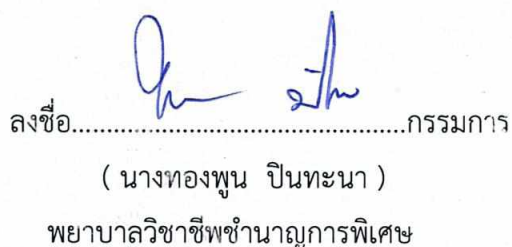 ลงชื่อ.................................................กรรมการ
( นางทองพูน ปินทะนา )
พยาบาลวิชาชีพชำนาญการพิเศษ